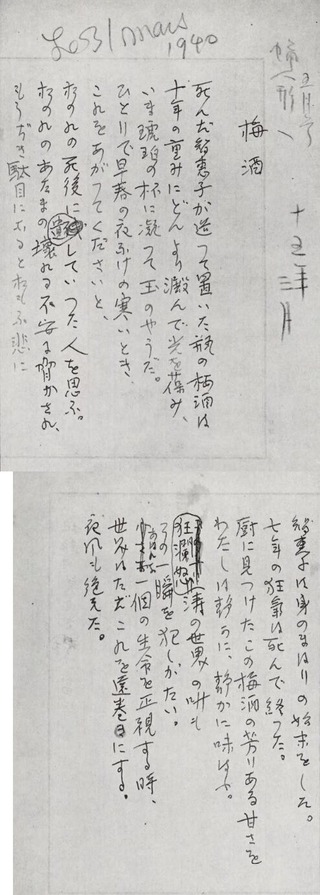 le 31 mars
1940
婦人形
五月号
梅酒
十五年三月
死んだ智恵子が造つて置いた瓶の梅酒は
十年の重みにどんより澱んで光を葆み、
いま琥珀の杯に凝つて玉のやうだ。
ひとりで早春の夜ふけの寒いとき、
これをあがつてくださいと、
おのれの死後に遺していつた人を思ふ。
おのれのあたまの壊れる不安に脅かされ、
もうぢき駄目になるとおもふ悲に
智恵子は身のまはりの始末をした。
七年の狂気は死んで終つた。
厨に見つけたこの梅酒の芳りある甘さを
わたしは静かに、静かに味はふ。
狂瀾怒濤の世界の叫も
この一瞬を犯しがたい。
あはれな一個の生命を正視する時、
世界はただこれを遠巻にする。
夜風も絶えた。